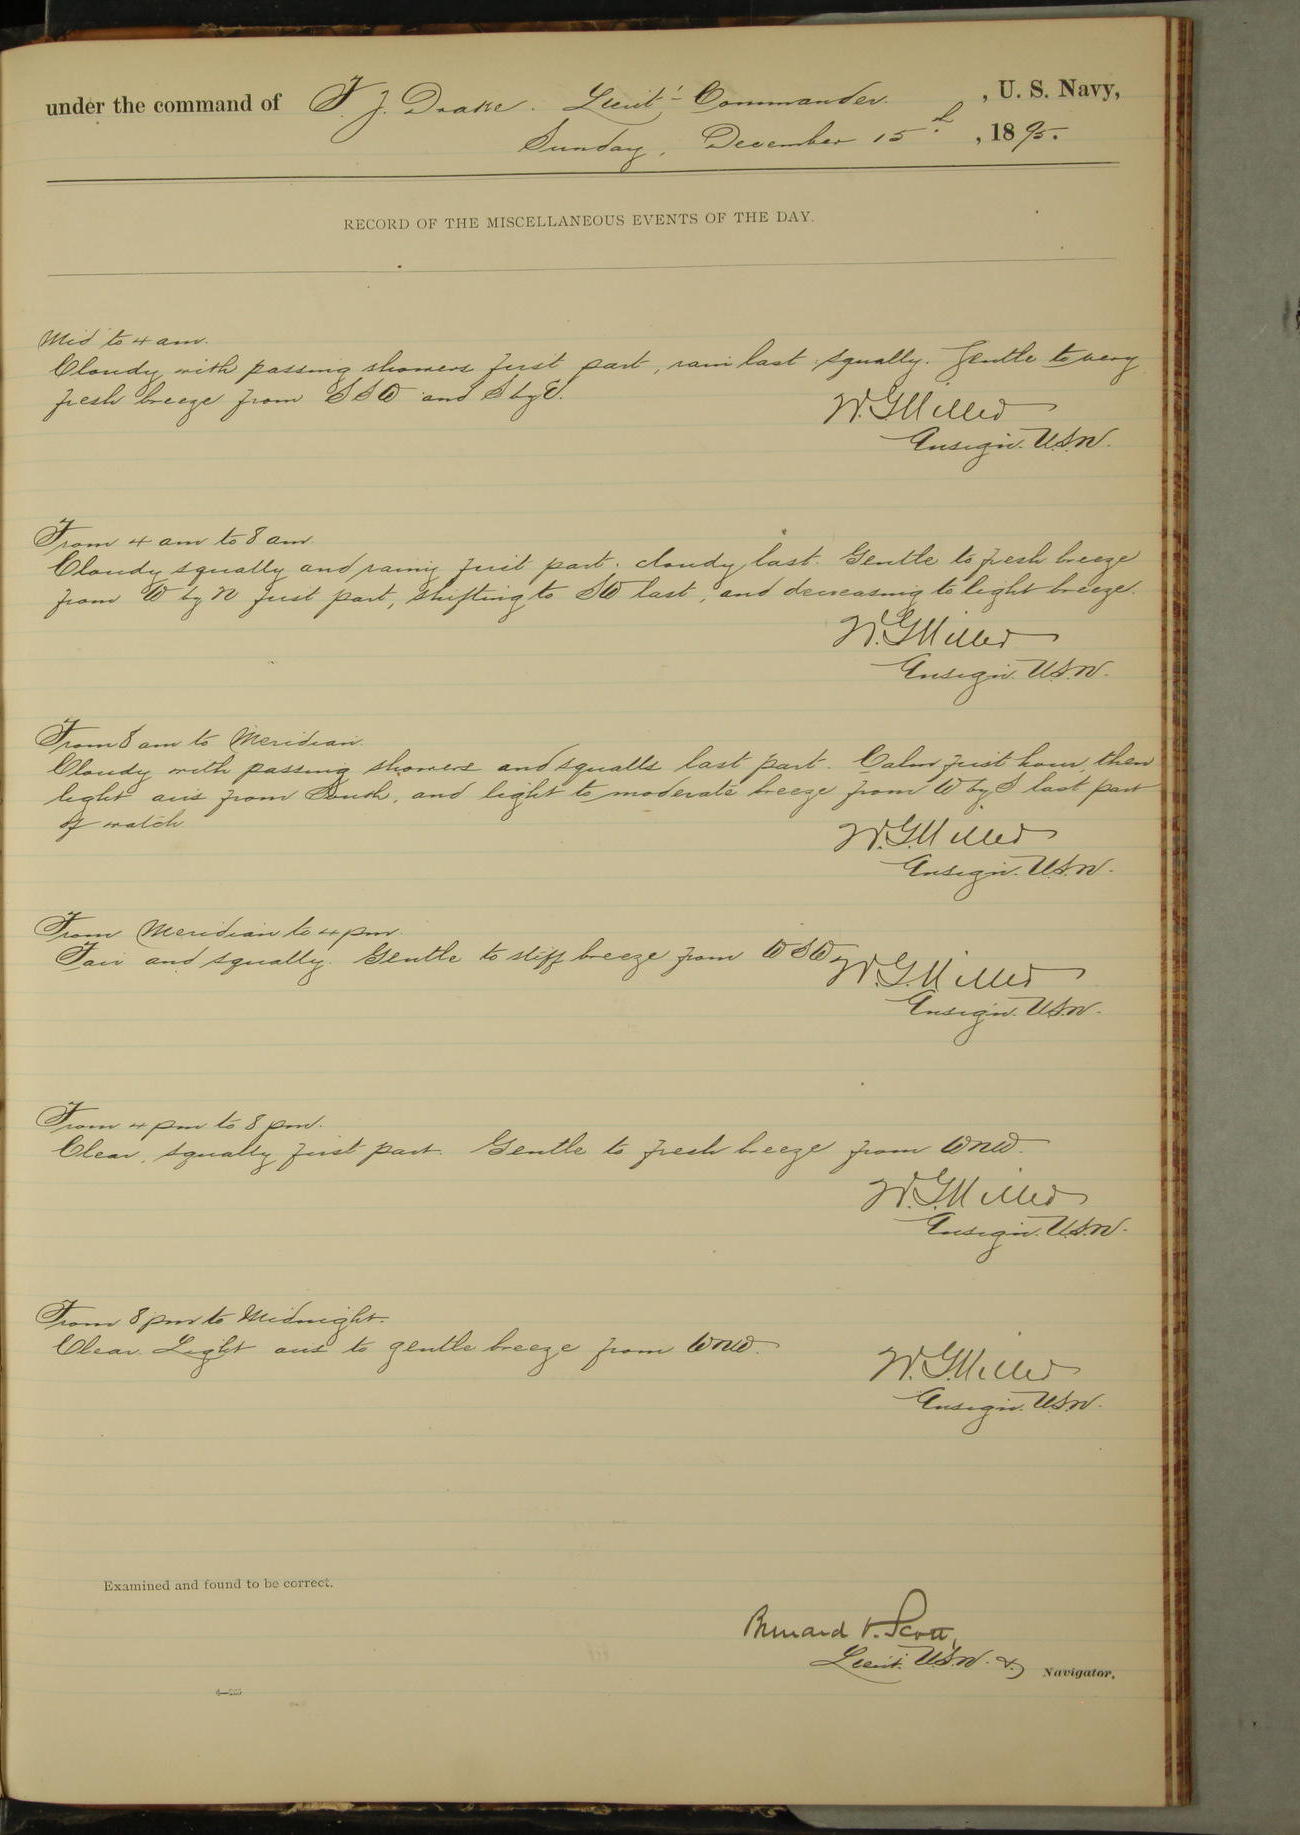 under the command of F. J. Drake. Lieut.- Commander. , U. S. Navy,
Sunday, December 15th , 1895.
RECORD OF THE MISCELLANEOUS EVENTS OF THE DAY.
Mid to 4 am.
Cloudy with passing showers first part, rain last squally. Gentle to very
fresh breeze from SSW and S by E.
W. G. Miller
Ensign. U.S.N.
From 4 am to 8 am.
Cloudy squally and rainy first part. cloudy last. Gentle to fresh breeze
from W by N first part, shifting to SW last, and decreasing to light breeze.
W. G. Miller
Ensign. U.S.N.
From 8 am to Meridian.
Cloudy with passing showers and squalls last part. Calm first hour, then
light airs from South, and light to moderate breeze from W by S last part
of watch
W. G. Miller
Ensign. U.S.N.
From Meridian to 4 pm.
Fair and squally. Gentle to stiff breeze from WSW.
W. G. Miller
Ensign. U.S.N.
From 4 pm to 8 pm.
Clear, squally first part. Gentle to fresh breeze from WNW.
W. G. Miller
Ensign. U.S.N.
From 8 pm to Midnight.
Clear. Light airs to gentle breeze from WNW.
W. G. Miller
Ensign. U.S.N.
Examined and found to be correct.
Bernard O. Scott,
Lieut. U.S.N. & Navigator.